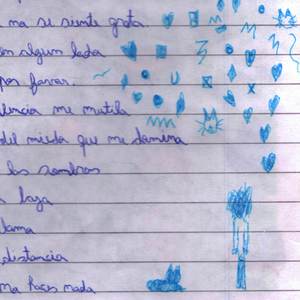 no se siente grata
en algun lado
por favor.
lencia me mutila
del miedo que me domina
las sombras
baja
lama
distancia
no haces nada